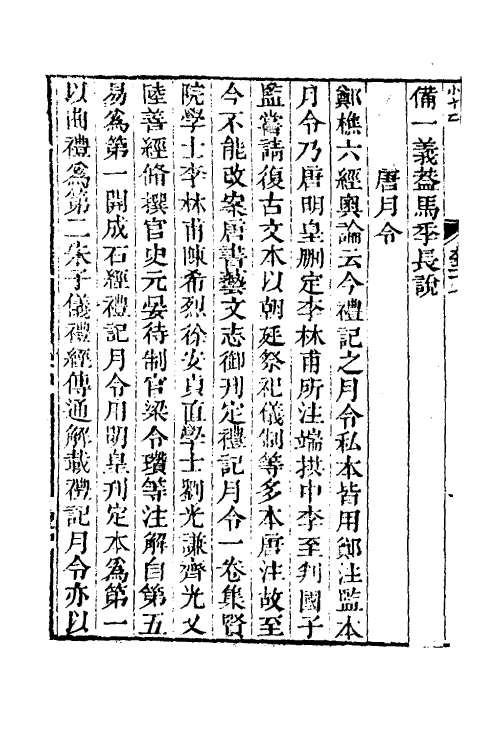 備一義葢馬季長說
唐月令
鄭樵六經奧論云今禮記之月令私本皆用鄭注監本
月令乃唐明皇刪定李林甫所注端拱中李至判國子
監嘗請復古文本以朝廷祭祀儀制等多本唐注故至
今不能改案唐書藝文志御刊定禮記月令一卷集賢
院學士李林甫陳希烈徐安貞直學士劉光謙齊光乂
陸善經脩撰官史元晏待制官梁令瓚等注解自第五
易爲第一開成石經禮記月令用明皇刊定本爲第一
以曲禮爲第二朱子儀禮經傳通解載禮記月令亦以